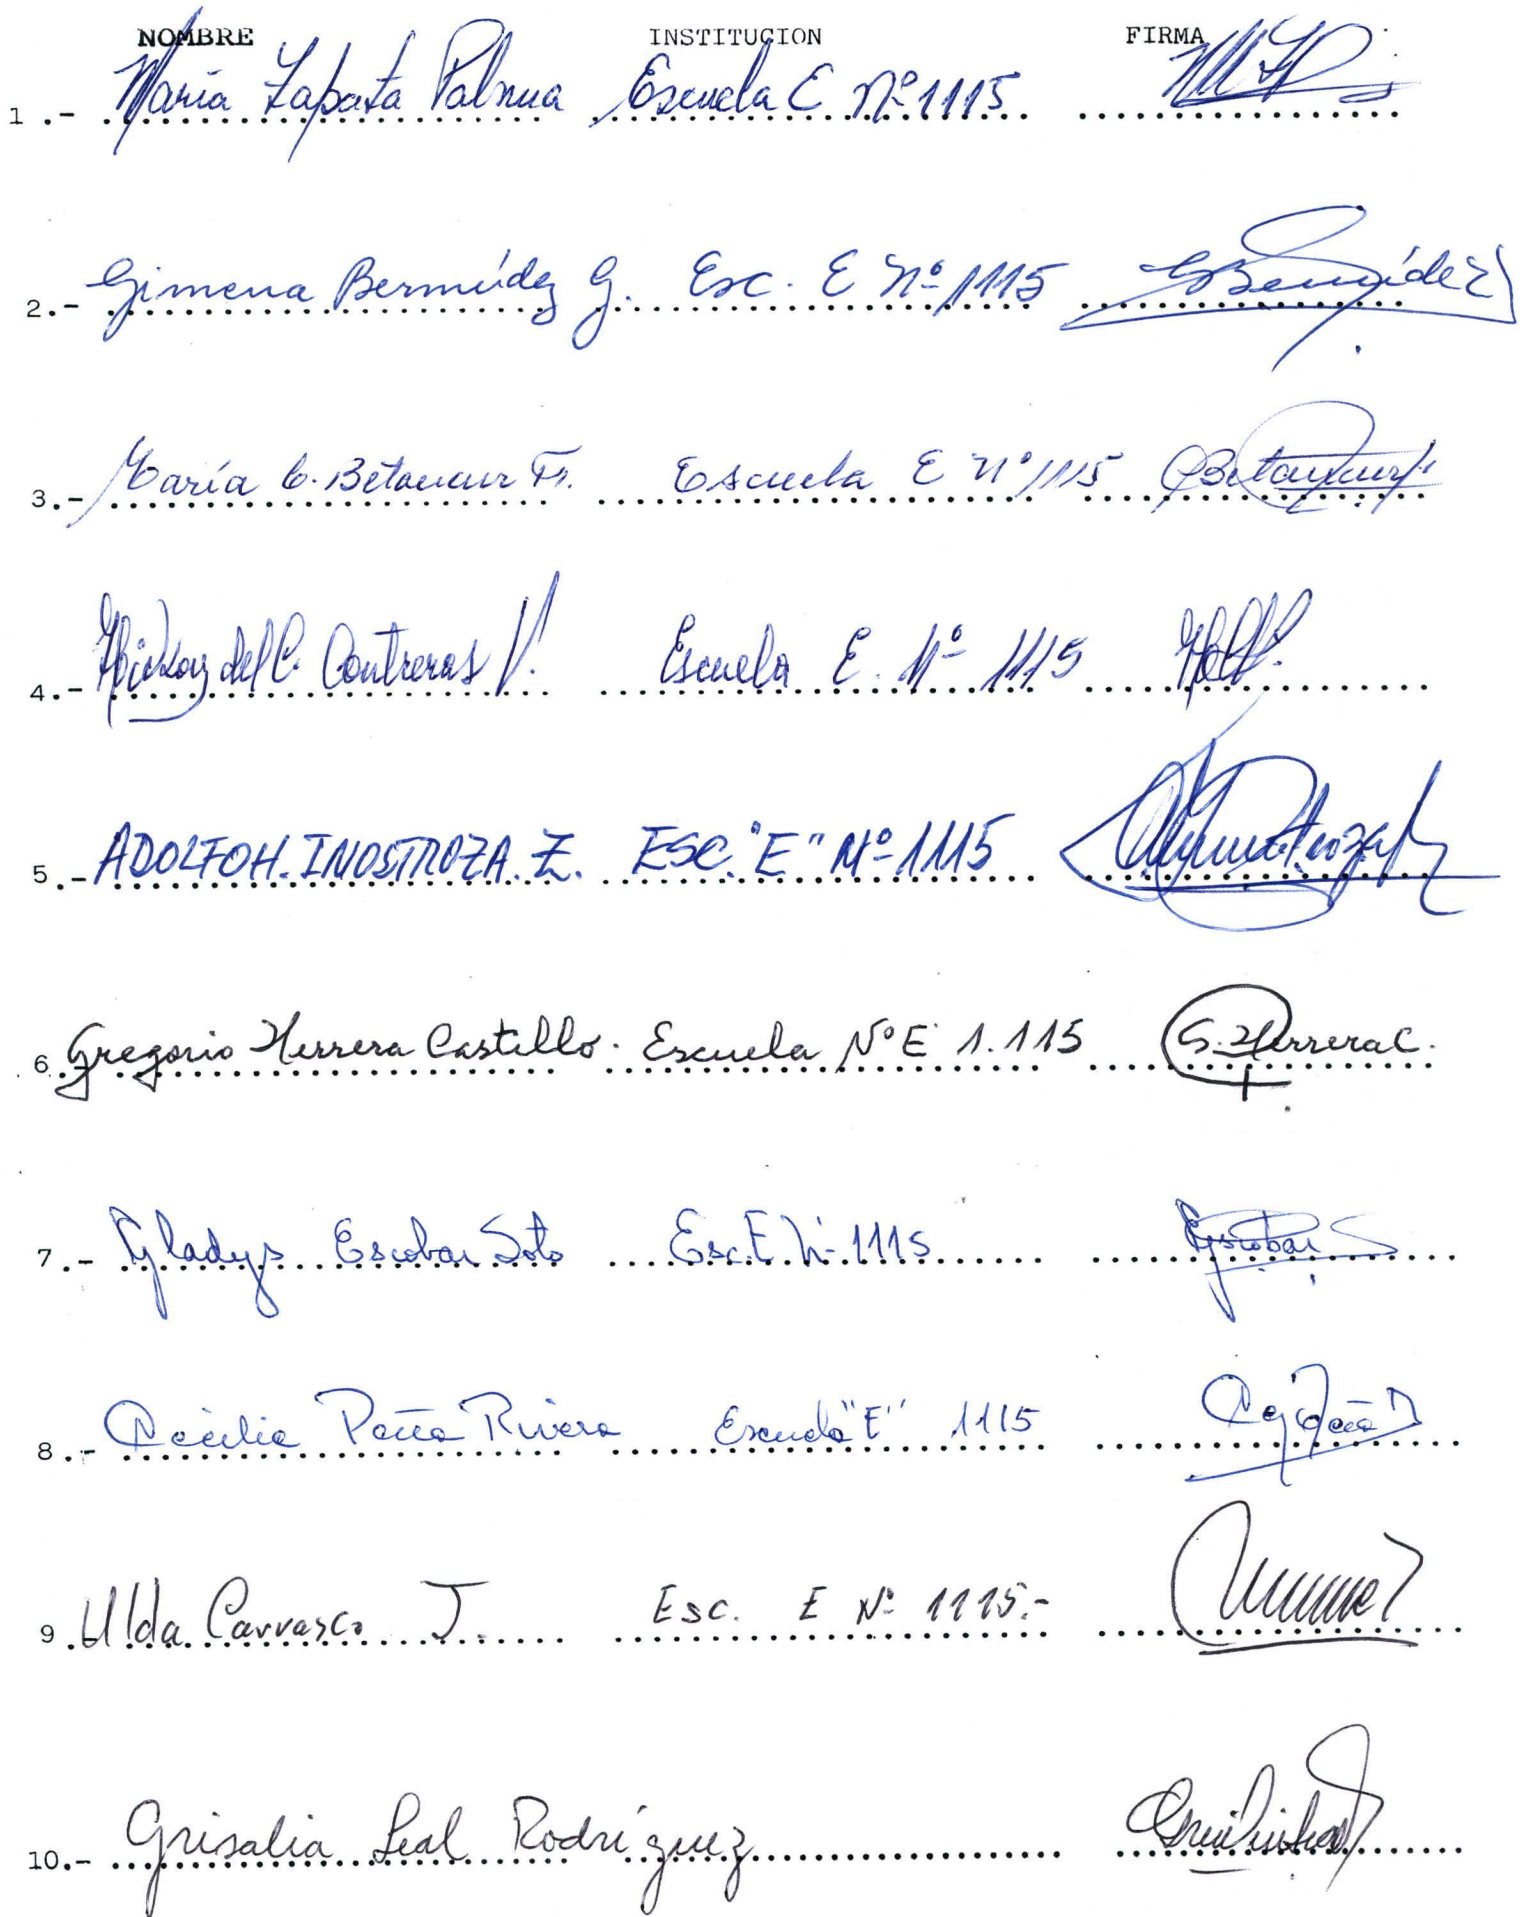 NOMBRE INSTITUCION FIRMA
1.- María Zapata Palma Escuela E Nº 1115
2.- Gimena Bermúdez G. Esc. E Nº 1115 GBermúdez
3.- María C. Betancur Escuela E Nº 1115 CBetancur
4.- del C. Contreras V. Escuela E. Nº 1115
5.- ADOLFO H. INOSTROZA. Z. ESC. "E" Nº 1115
6.- Gregorio Herrera Castillo. Escuela Nº E 1.115 G. Herrera C.
7.- Gladys Escobar Soto Esc. E. Nº 1115 GEscobar S
8.- Cecilia Peña Rivera Escuela "E" 1115
9.- Ulda Carrasco J. Esc. E Nº 1115.-
10.- Grisalia Leal Rodríguez